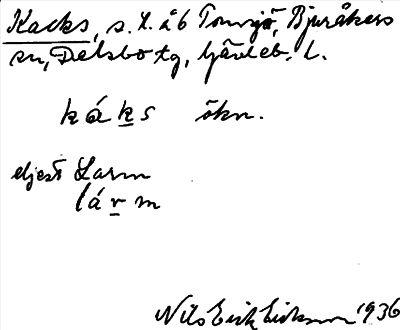 Kacks, s. Y. å b Tomsjö, Bjuråkers
sn, Delsbo tg, Gävleb. L.
káks ökn.
eljest Larm
lárm
Nils Erik Eriksson 1936